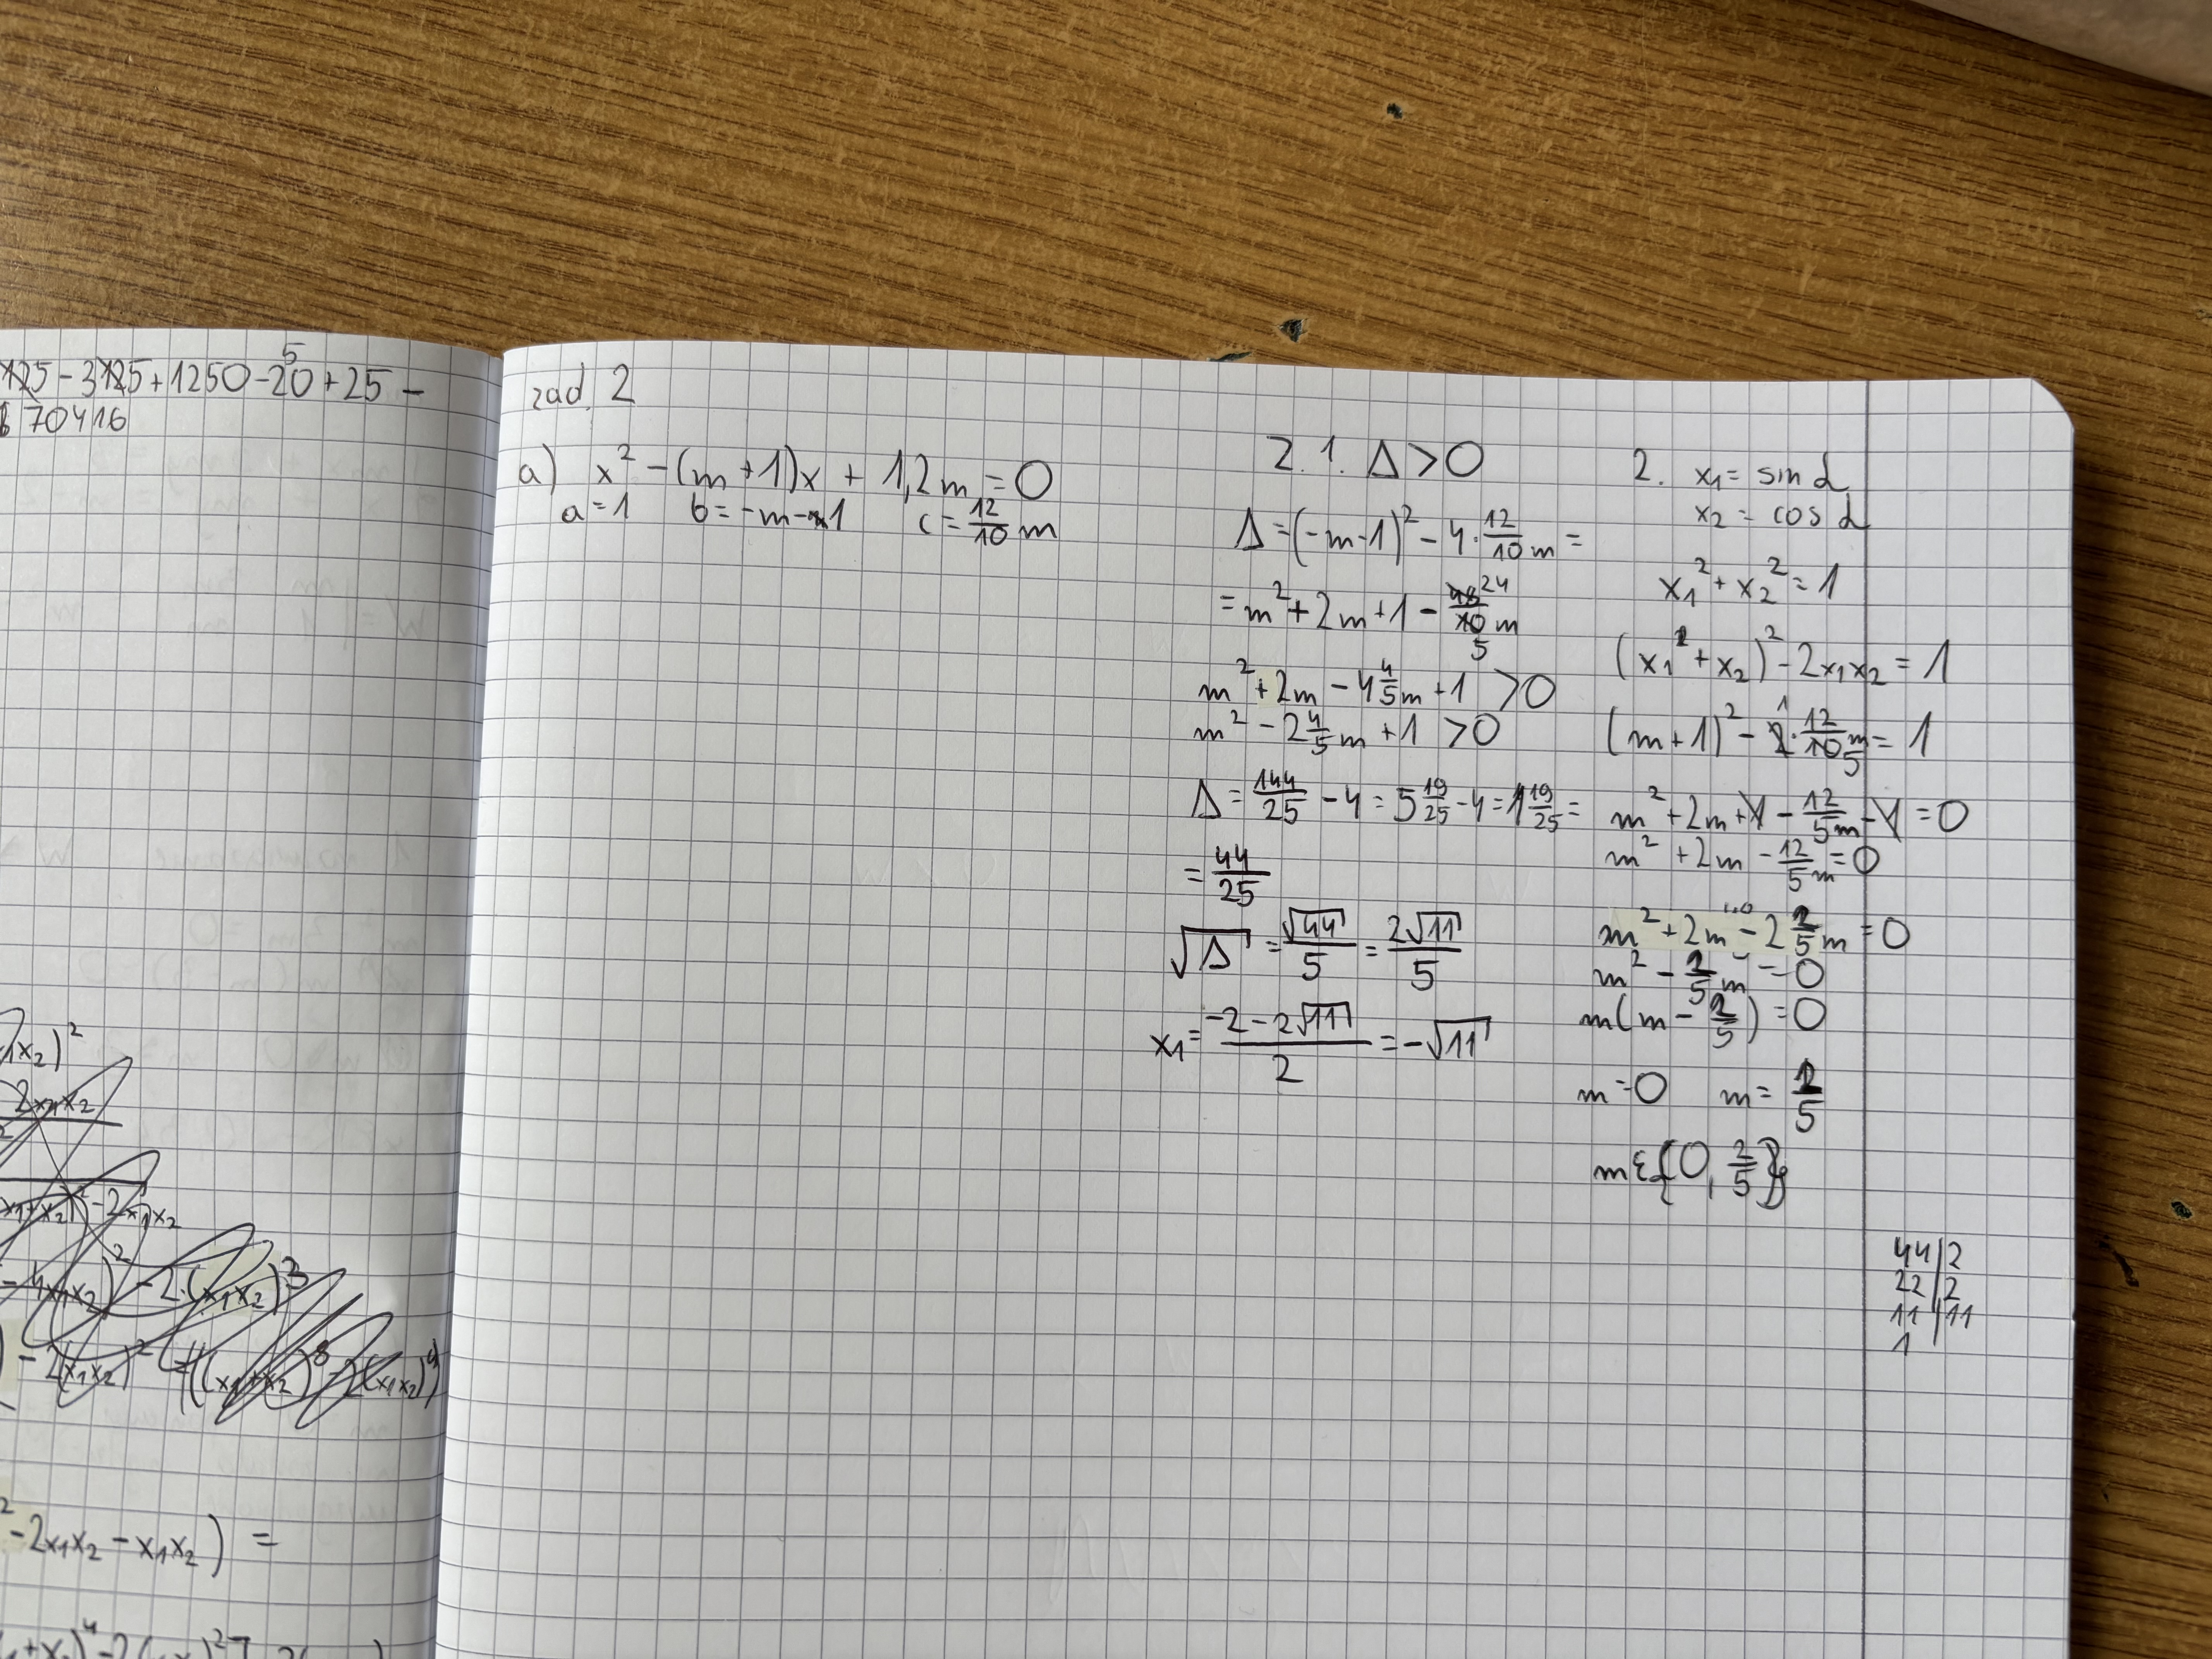 25 - 3125 + 1250 - 20 + 25 -
5
70416
x₂)²
2x₁x₂
(x₁+x₂)² - 2x₁x₂
- 4x₁x₂)² - 2·(x₁x₂)³
) - 2(x₁x₂)² - ((x₁+x₂)⁸ - 2(x₁x₂)⁴)
² - 2x₁x₂ - x₁x₂) =
zad. 2
a) x² - (m+1)x + 1,2m = 0
a = 1 b = -m-1 c = 12/10 m
2. 1. Δ > 0
Δ = (-m-1)² - 4 · 12/10 m =
= m² + 2m + 1 - 48/10 m
24
5
m² + 2m - 4 4/5 m + 1 > 0
m² - 2 4/5 m + 1 > 0
Δ = 144/25 - 4 = 5 19/25 - 4 = 1 19/25 =
= 44/25
√Δ = √44/5 = 2√11/5
x₁ = (-2 - 2√11)/2 = -√11
2. x₁ = sin α
x₂ = cos α
x₁² + x₂² = 1
(x₁ + x₂)² - 2x₁x₂ = 1
(m+1)² - 2 · 12/10 m = 1
1
5
m² + 2m + 1 - 12/5 m - 1 = 0
m² + 2m - 12/5 m = 0
m² + 2m - 2 2/5 m = 0
m² - 2/5 m = 0
m(m - 2/5) = 0
m = 0 m = 2/5
m ∈ {0, 2/5}
44|2
22|2
11|11
1